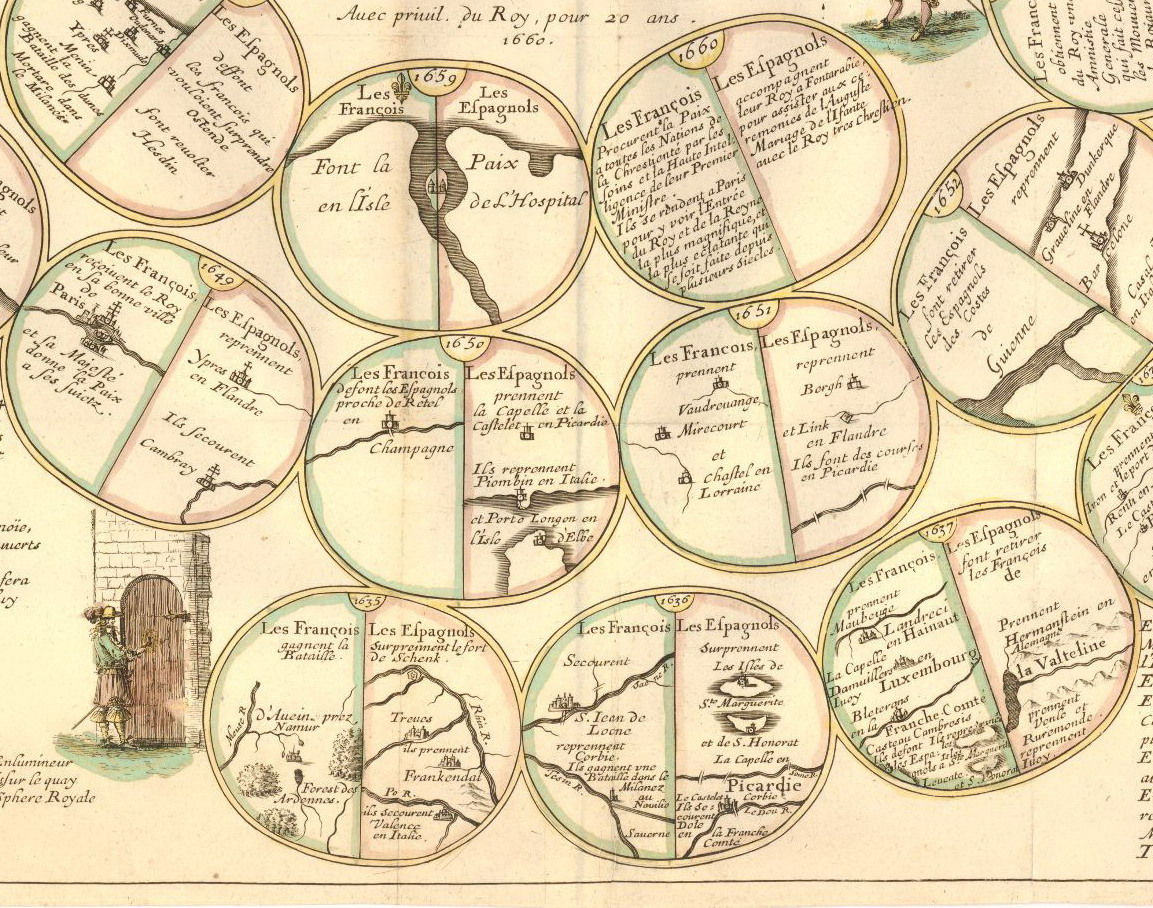 Avec privil. du Roy, pour 20 ans.
1660.
Furnes
Ypres
Dixmude
la Menin
gagnent la
Bataille des Dunes
Mortare, dans
le Milanés
Les Espagnols
deffont
les françois qui
vouloient surprendre
Ostende
font revolter
Hesdin
1659
Les
François
Font la
en l'Isle
Les
Espagnols
Paix
de L'Hospital
1660
Les François
Procurent la Paix
a toutes les Nations de
la Chrestienté par les
soins et la Haute Intel
ligence de leur Premier
Ministre
Ils se rendent a Paris
pour y voir l'Entrée
du Roy et de la Reyne
la plus magnifique, et
la plus eclatante qui
se soit faite depuis
Plusieurs Siecles
Les Espagnols
accompagnent
leur Roy a Fontarabie,
pour assister aux ce-
remonies de l'Auguste
Mariage de l'Ifante
avec le Roy tres Chrestien.
Les Franc
obtiennent
du Roy vne
Amnistie
Generale
qui fait ces
les Mouve
1652
Les François
font retirer
les Espagnols
des Costes
de
Guienne
Les Espagnols
reprennent
Graveline en
Dunkerque
Flandre
Ber
celone
Casal
en Ita
1649
Les François
reçoivent le Roy
en sa bonne ville
de
Paris
et sa Majesté
donne la Paix
a ses suietz.
Les Espagnols
reprennent
Ypres
en Flandre
Ils secourent
Cambray
1650
Les François
defont les Espagnols
proche de Retel
en
Champagne
Les Espagnols
prennent
la Capelle et la
Castelet en Picardie
Ils reprennent
Piombin en Italie.
et Porto Longon en
l'Isle d'Elbe
1651
Les François
prennent
Vaudreuange,
Mirecourt
et
Chastel en
Lorraine
Les Espagnols.
reprennent
Borgh
et Link
en Flandre
Ils font des courses
en Picardie
Les Franço
prennent
Iuon et le port
Renti en
Le Cast
1635
Les François
gagnent la
Bataille.
Meuse R.
d'Avein prez
Namur
Forest des
Ardennes.
Les Espagnols
Surprennent le fort
de Schenk.
Rhin R.
Treues
ils prennent
Frankendal
Po R.
ils secourent
Valence
en Italie.
1636
Les François
Secourent
Saone R.
S. Iean de
Locne
reprennent
Corbie.
Ils gagnent vne
Bataille dans le
Milanez
au
Tesin R.
Saverne
Les Espagnols
Surprennent
Les Isles de
Ste Marguerite
et de S. Honorat
La Capelle en
Some R.
Picardie
Le Castelet
Corbie
Ils se-
courent
Dole
en la Franche
Comté
Le Dou R.
1637
Les François,
prennent
Maubeuge
Landreci
en Hainaut
La Capelle
Damvillers en
Iuoy
Luxembourg
Bleterans
en la Franche-Comté
Casteau Cambresis
Ils defont
Ils reprennent
les Espa-
gnols a
Leucate
et S. Honorat
Les Espagnols
font retirer
les François
de
la Valteline
Prennent
Hermanstein en
Alemagne
prennent
Venlo et
Ruremonde
reprennent
Iuoy.
gnols
eur
noïe,
ouverts
sera
uy
Enlumineur
sur le quay
Sphere Royale